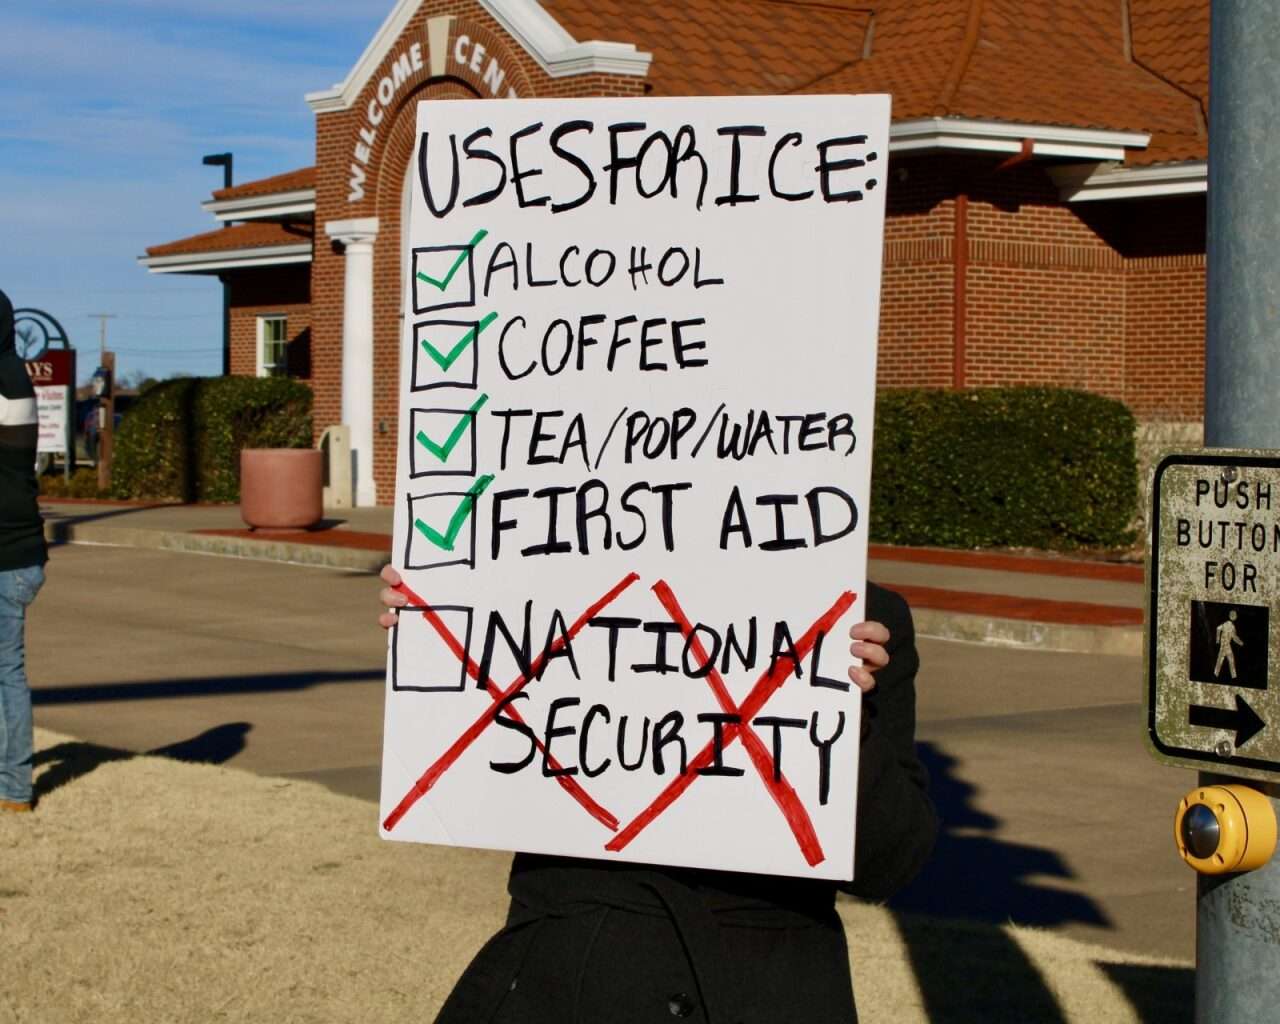 WELCOME CEN
USES FOR ICE:
ALCOHOL
COFFEE
TEA/POP/WATER
FIRST AID
NATIONAL
SECURITY
AYS
PUSH
BUTTON
FOR